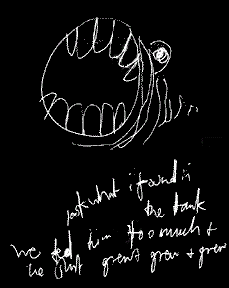 just what i found in
the tank
we fed him too much +
he just grew grew + grew